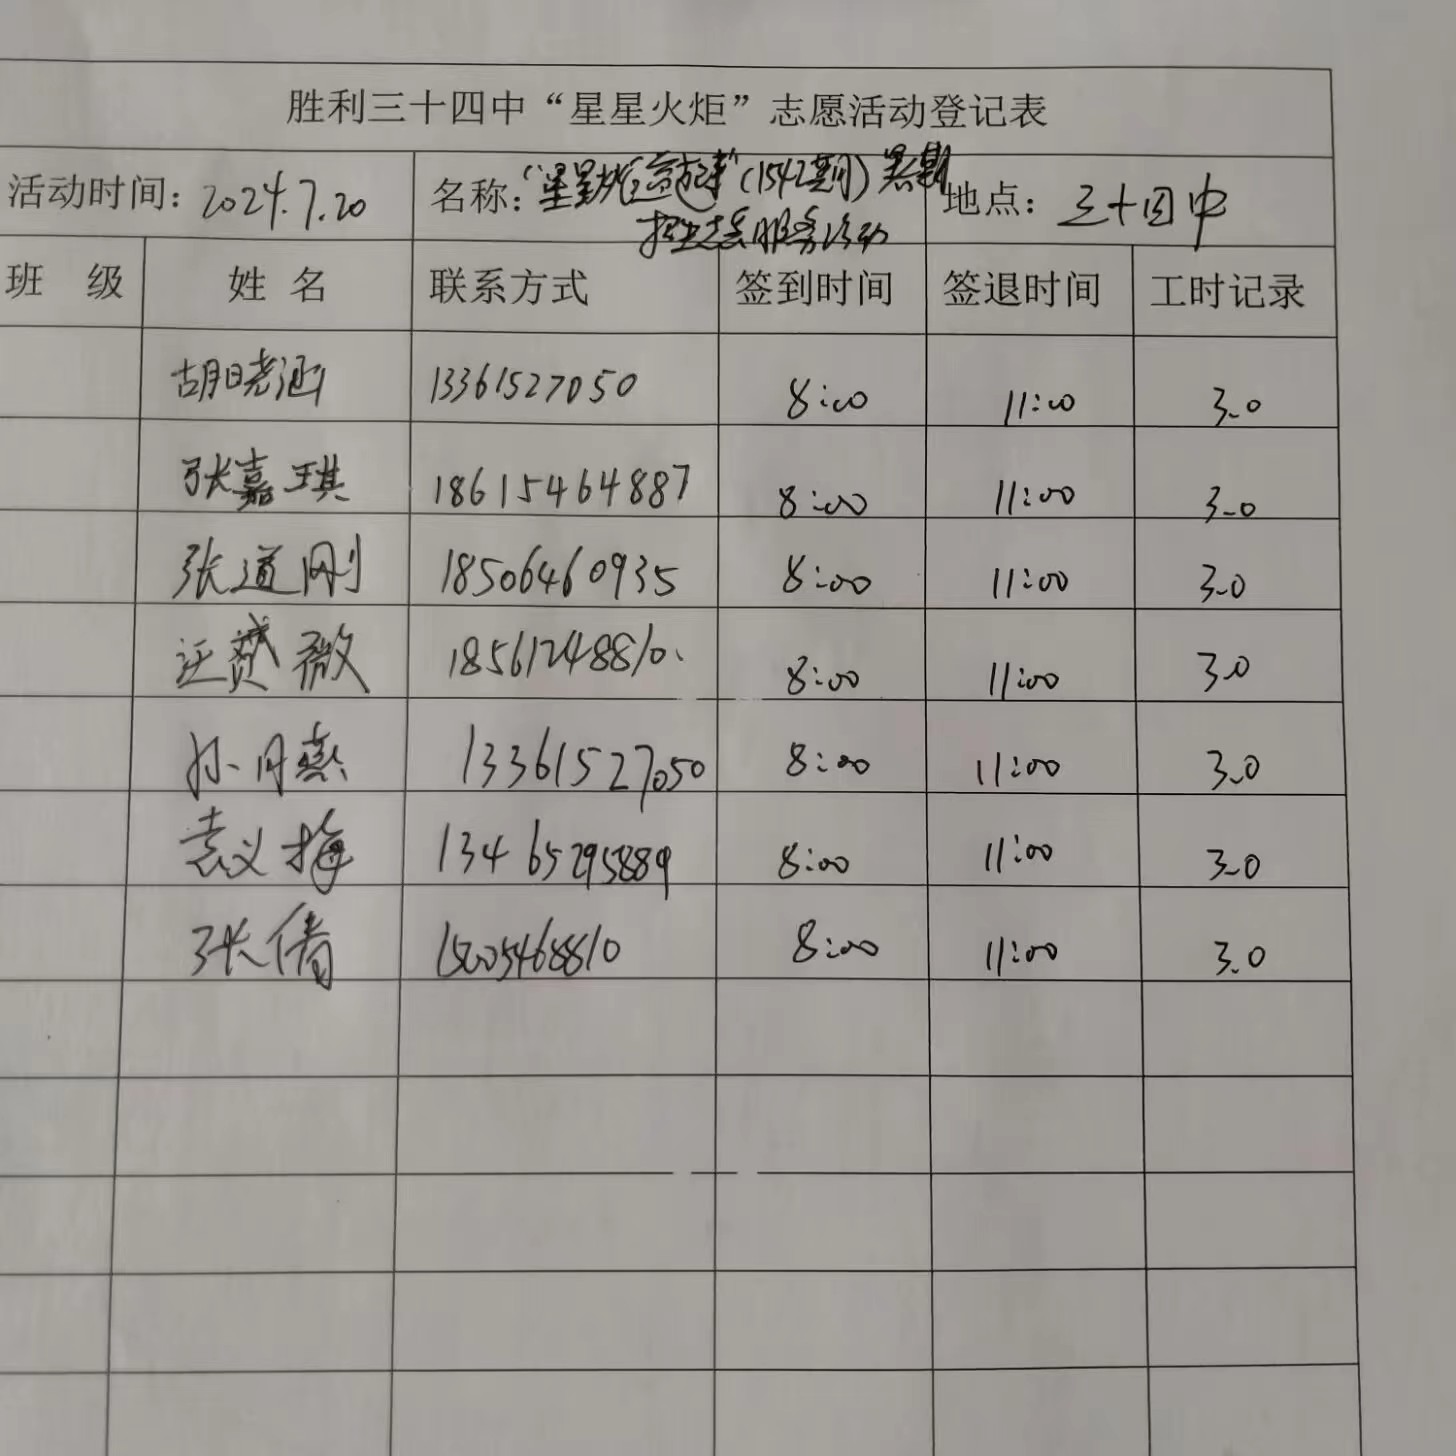 胜利三十四中“星星火炬”志愿活动登记表
活动时间：2024.7.20 名称：“星星火炬 (1542期) 暑期 地点：三十四中
招生志愿服务活动
班 级 姓 名 联系方式 签到时间 签退时间 工时记录
胡晓涵 13361527050 8:00 11:00 3.0
张嘉琪 18615464887 8:00 11:00 3.0
张道刚 18506460935 8:00 11:00 3.0
汪赟薇 18561248810. 8:00 11:00 3.0
孙月燕 13361527050 8:00 11:00 3.0
袁义梅 13465295889 8:00 11:00 3.0
张倩 15005468810 8:00 11:00 3.0